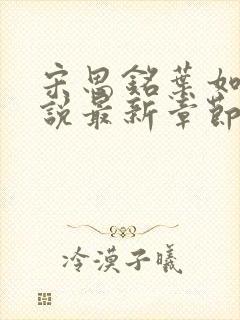 宋思銘葉如
說最新章節
冷漠子曦